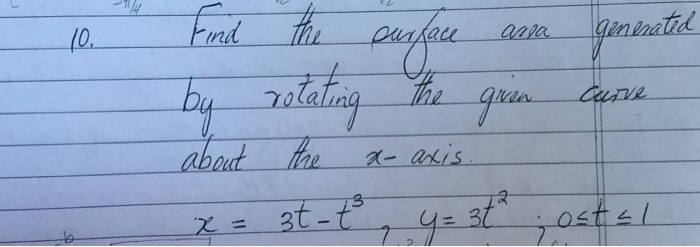 10. Find the surface area generated
by rotating the given curve
about the x-axis.
x = 3t - t³, y = 3t² ; 0≤t≤1